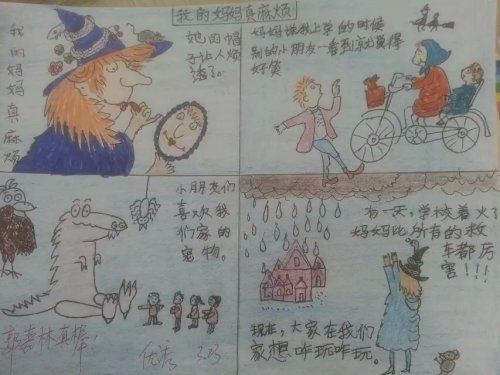 我的妈妈真麻烦
我的妈妈真麻烦
她的帽
子让人烦
透了。
妈妈送我上学的时候
别的小朋友一看到就觉得
好笑
小朋友们
喜欢我
们家的
宠物。
嘉林真棒！
优秀
有一天，学校着火了
妈妈比所有的救
车都厉
害!!!
现在，大家在我们
家想咋玩咋玩。